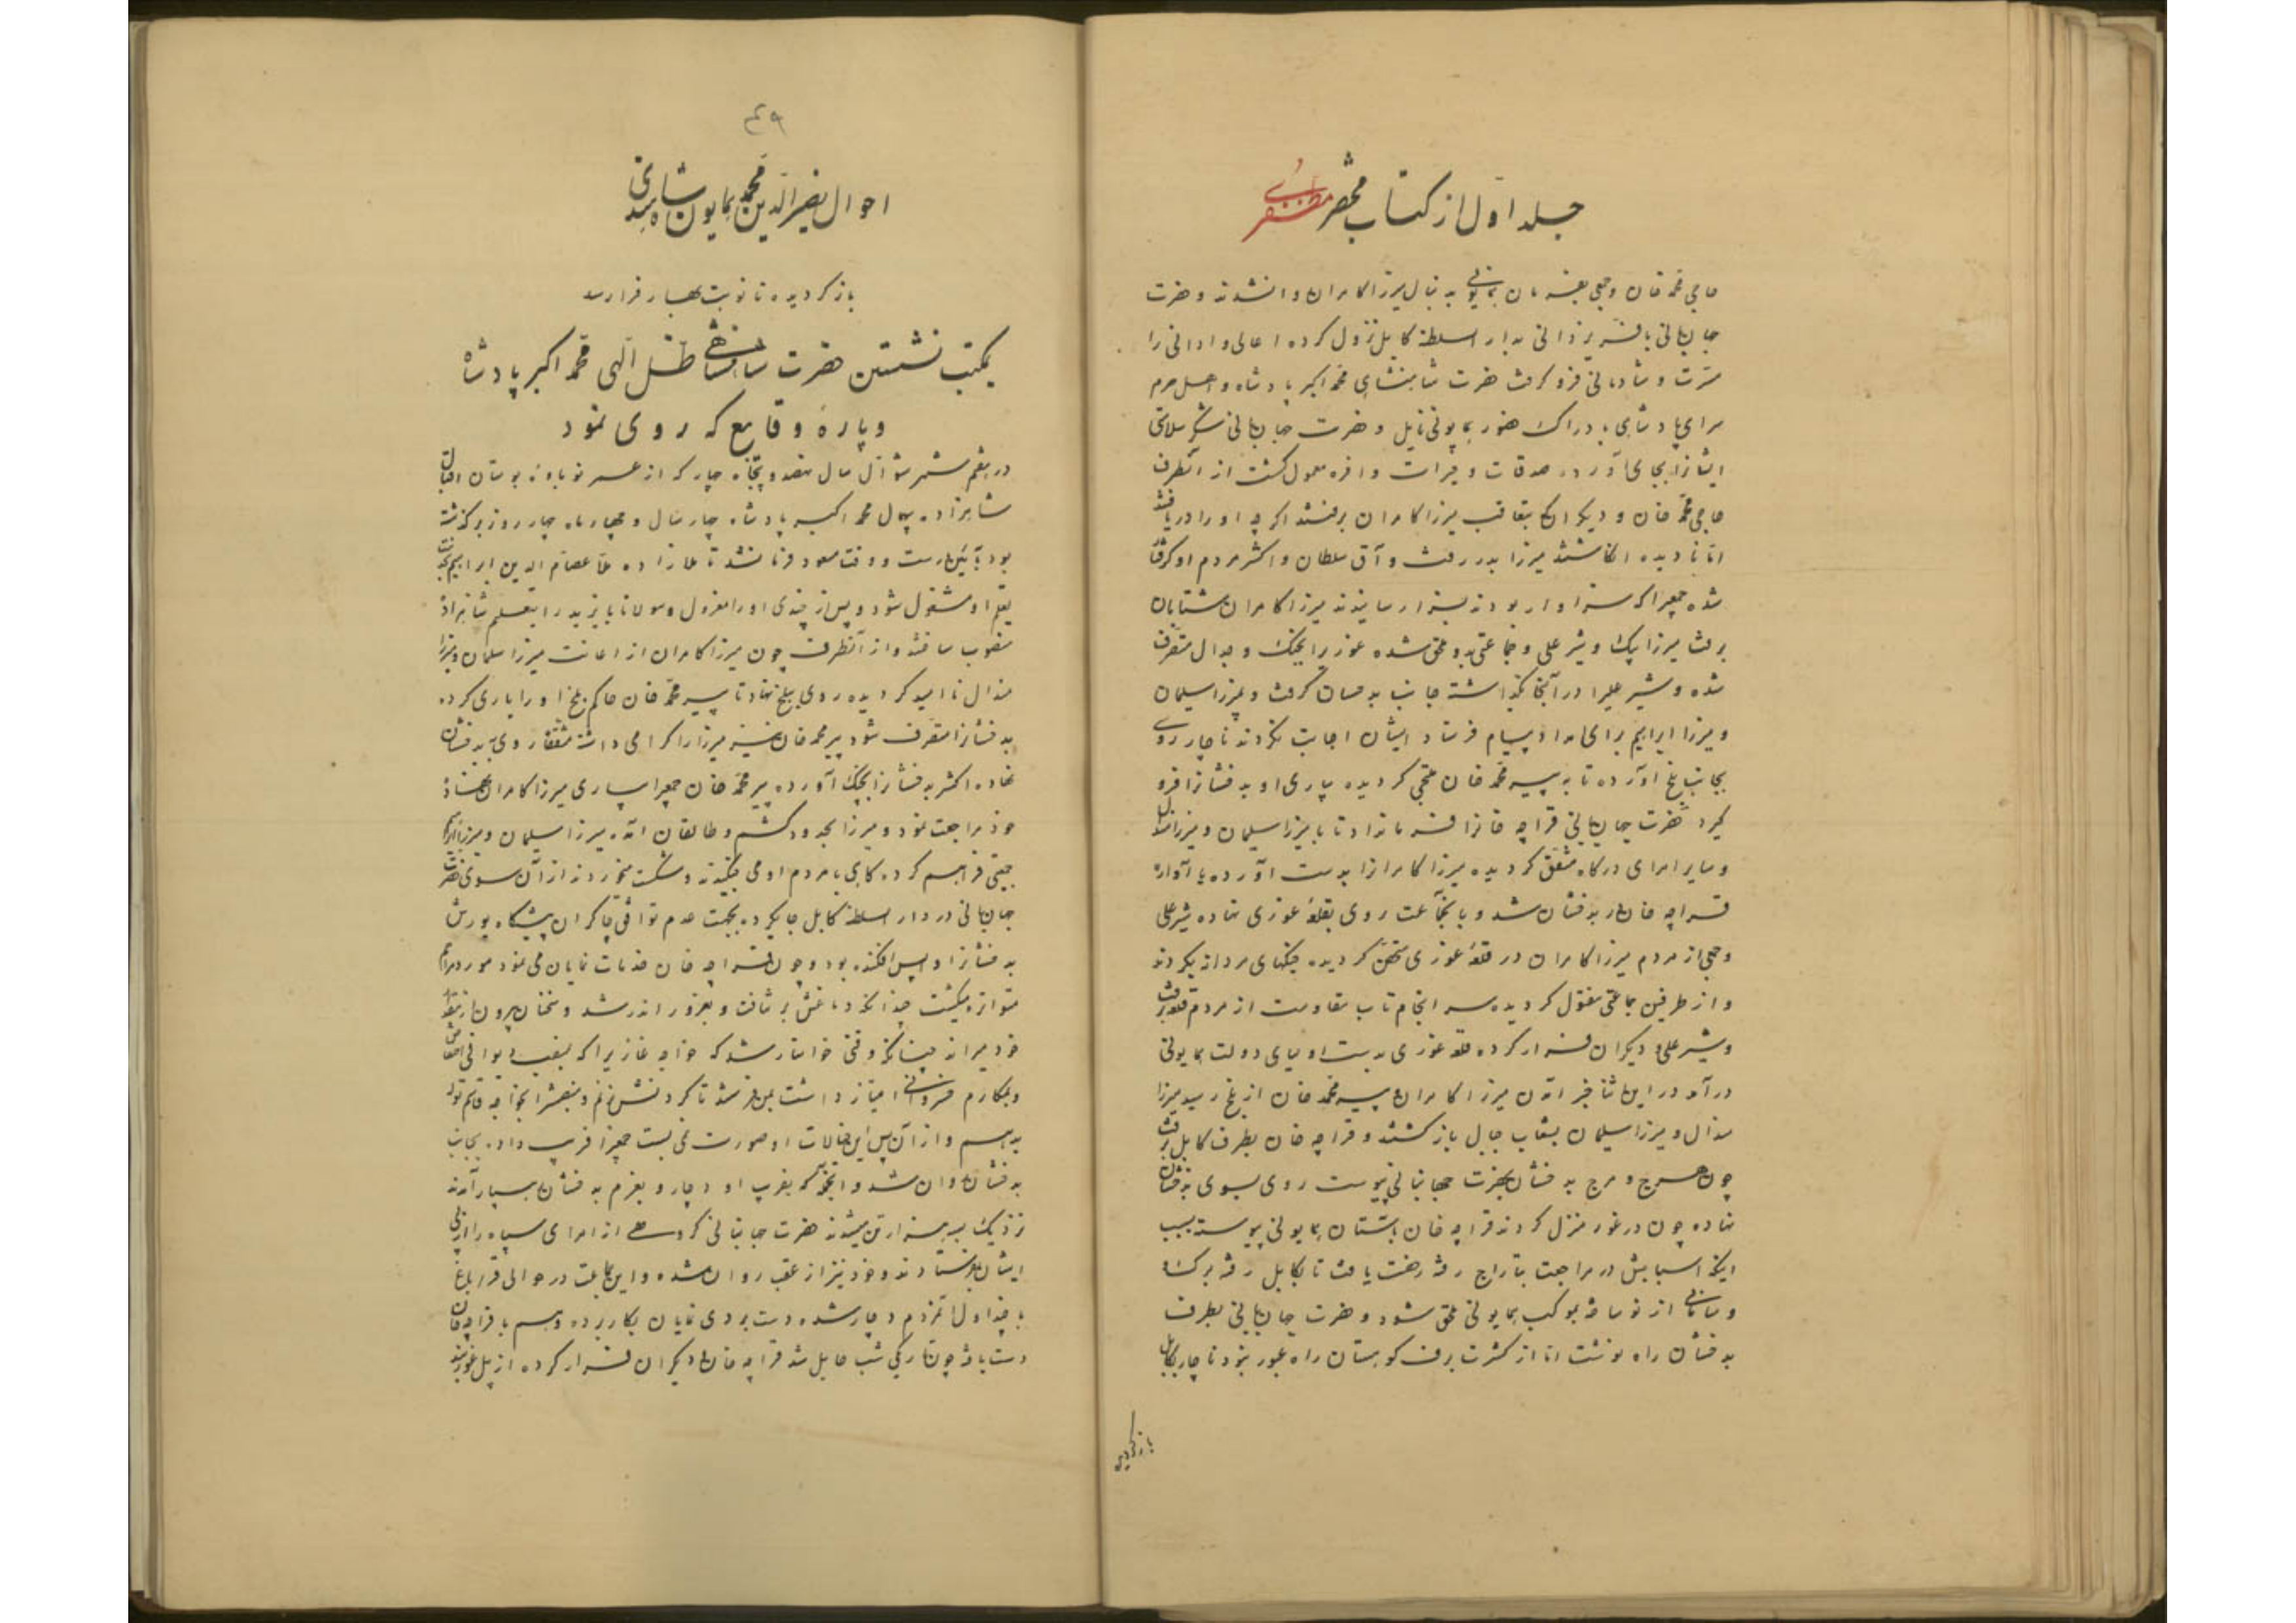 جلد اول از کتاب مختصر مظفری
حاجی محمد خان و جمعی بفرمان همایونی به دنبال میرزا کامران روانشدند و حضرت
جهانبانی بافر یزدانی بدار السلطنه کابل نزول کرده اعالی و ادانی را
مسرت و شادمانی فزو گرفت حضرت شاهنشاهی محمد اکبر پادشاه و اهل حرم
سرای پادشاهی بادراک حضور همایونی نایل و حضرت جهانبانی شکر سلامتی
ایشانرا بجای آورد صدقات و خیرات وافره معمول گشت از آنطرف
حاجی محمد خان و دیگران که بتعاقب میرزا کامران برفتند اگر چه او را دریافتند
اما نادیده انگاشتند میرزا بدر رفت و آق سلطان و اکثر مردم او گرفتار
شده جمعیرا که سزاوار بودند بسزا رسانیدند میرزا کامران شتابان
برفت میرزا بیک و شیر علی و جماعتی بدو ملحق شده غوری را بجنگ و جدال متصرف
شده و شیر علیرا در آنجا بگذاشته جانب بدخشان گرفت و بمیرزا سلیمان
و میرزا ابراهیم برای امداد پیام فرستاد ایشان اجابت نکردند ناچار روی
بجانب بلخ آورده تا به پیر محمد خان ملتجی گردیده بیاری او بدخشانرا فرو
گیرد حضرت جهانبانی قراچه خانرا فرمانداد تا با میرزا سلیمان و میرزا هندال
و سایر امرای درگاه متفق گردیده میرزا کامرانرا بدست آورده یا آواره
قراچه خان در بدخشان شد و با جماعت روی بقلعه غوری نهاده شیر علی
و جمعی از مردم میرزا کامران در قلعه غوری متحصن گردیده جنگهای مردانه بکردند
و از طرفین جماعتی مقتول گردیده سر انجام تاب مقاومت از مردم قلعه برفت
و شیر علی و دیگران فرار کرده قلعه غوری بدست اولیای دولت همایونی
درآمد در این اثنا خبر آمدن میرزا کامران و پیر محمد خان از بلخ رسید میرزا
هندال و میرزا سلیمان بشعاب جبال بازگشتند و قراچه خان بطرف کابل برفت
چون هرج و مرج بدخشان بحضرت جهانبانی پیوست روی بسوی بدخشان
نهاده چون در غور منزل کردند قراچه خان باستان همایونی پیوست بسبب
اینکه اسبابش در مراجعت بتاراج رفته رخصت یافت تا بکابل رفته برگ و
و سامانی از نو ساخته بموکب همایونی ملحق شود و حضرت جهانبانی بطرف
بدخشان راه نوشت اما از کثرت برف کوهستان راه عبور نبود ناچار بکابل
بازگردیده
۴۹
احوال نصیر الدین محمد همایون پادشاه
بازگردیده تا نوبت بهار فرارسد
بمکتب نشستن حضرت شاهنشاهی ظل الهی محمد اکبر پادشاه
و پاره وقایع که روی نمود
در هفتم شهر شوال سال نهصد و پنجاه چار که از عمر نوباوه بوستان اقبال
شاهزاده بیهمال محمد اکبر پادشاه چار سال و چهار ماه چار روز برگذشته
بود بآئین درست و وقت مسعود فرمانشد تا ملا زاده ملا عصام الدین ابراهیم بخدمت
تعلیم او مشغول شود و پس از چندی او را معزول و مولانا بایزید را بتعلیم شاهزاده
منصوب ساختند و از آنطرف چون میرزا کامران از اعانت میرزا سلیمان و میرزا
هندال ناامید گردیده روی ببلخ نهاد تا پیر محمد خان حاکم بلخ او را یاری کرده
بدخشانرا متصرف شود پیر محمد خان نیز میرزا را گرامی داشته متفقا روی به بدخشان
نهاده اکثر بدخشانرا بچنگ آورده پیر محمد خان جمعیرا بیاری میرزا کامران نهاده
خود مراجعت نمود و میرزا بحدود کشم و طالقان آمده میرزا سلیمان و میرزا ابراهیم
جمعیتی فراهم کرده گاهی با مردم او می جنگیدند و شکست میخوردند از آن سوی حضرت
جهانبانی در دار السلطنه کابل جایکرده بجهت عدم توافق چاکران پیشگاه یورش
بدخشانرا واپس افکنده بود و چون قراچه خان خدمات نمایان می نمود مورد مراحم
متواتره میگشت چندانکه دماغش برتافت و بغرور اندر شد و سخنان بیرون از اندازه
خود میراند چنانکه وقتی خواستار شد که خواجه غازیرا که بمنصب دیوانی اختصاص
و بمکارم خسروانی امتیاز داشت بمن فرستند تا گردنش زنم و منصبش را بخواجه قاسم توله
بدهم و از آن پس این خیالات او صورت نمی بست جمعیرا فریب داده بجانب
بدخشان روان شد و آنجمع که بفریب او دچار و بعزم بدخشان رهسپار آمدند
نزدیک بسه هزار تن میشدند حضرت جهانبانی گروهی از امرای سپاه را از پی
ایشان بفرستادند و خود نیز از عقب روان شده و این جماعت در حوالی قراباغ
با چنداول آنمردم دچار شده دست بردی نمایان بکار برده و هم با قراچه خان
دست یافته چون تاریکی شب حایل شد قراچه خان و دیگران فرار کرده از پل غوربند